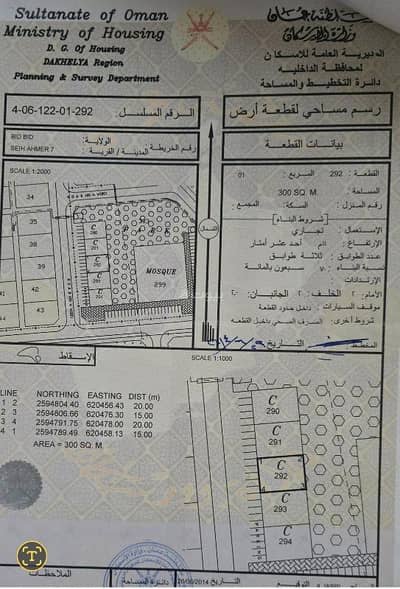 Sultanate of Oman
Ministry of Housing
D. G. Of Housing
DAKHELYA Region
Planning & Survey Department
سلطنة عمان
وزارة الإسكان
المديرية العامة للإسكان
لمحافظة الداخلية
دائرة التخطيط والمساحة
رسم مساحي لقطعة أرض
الرقم المسلسل: 4-06-122-01-292
BID BID
SEIH AHMER 7
الولاية:
المدينة / القرية:
رقم الخريطة
بيانات القطعة
القطعة: 292 المربع: 01
المساحة: 300 SQ. M.
رقم المنزل: السكة: المجمع:
شروط البناء
الإستعمال: تجاري
الإرتفاع: أحد عشر أمتار
عدد الطوابق: ثلاثة طوابق
نسبة البناء: سبعون بالمائة
الإرتدادات
الأمام: الخلف: الجانبان:
موقف السيارات: داخل حدود القطعة
شروط أخرى: الصرف الصحي داخل القطعة
المخطط
التاريخ
SCALE 1:2000
34
35
35
36
38
39
40
41
42
C
290
C
C
C
C
MOSQUE
299
الشمال
الإسقاط
SCALE 1:1000
LINE NORTHING EASTING DIST (m)
1 2 2594804.40 620456.43 20.00
2 3 2594806.66 620476.30 15.00
3 4 2594791.75 620478.00 20.00
4 1 2594789.49 620458.13 15.00
AREA = 300 SQ. M.
C
290
C
291
C
292
C
293
C
294
الملاحظات
دائرة المساحة
التاريخ 26/06/2014
التوقيع